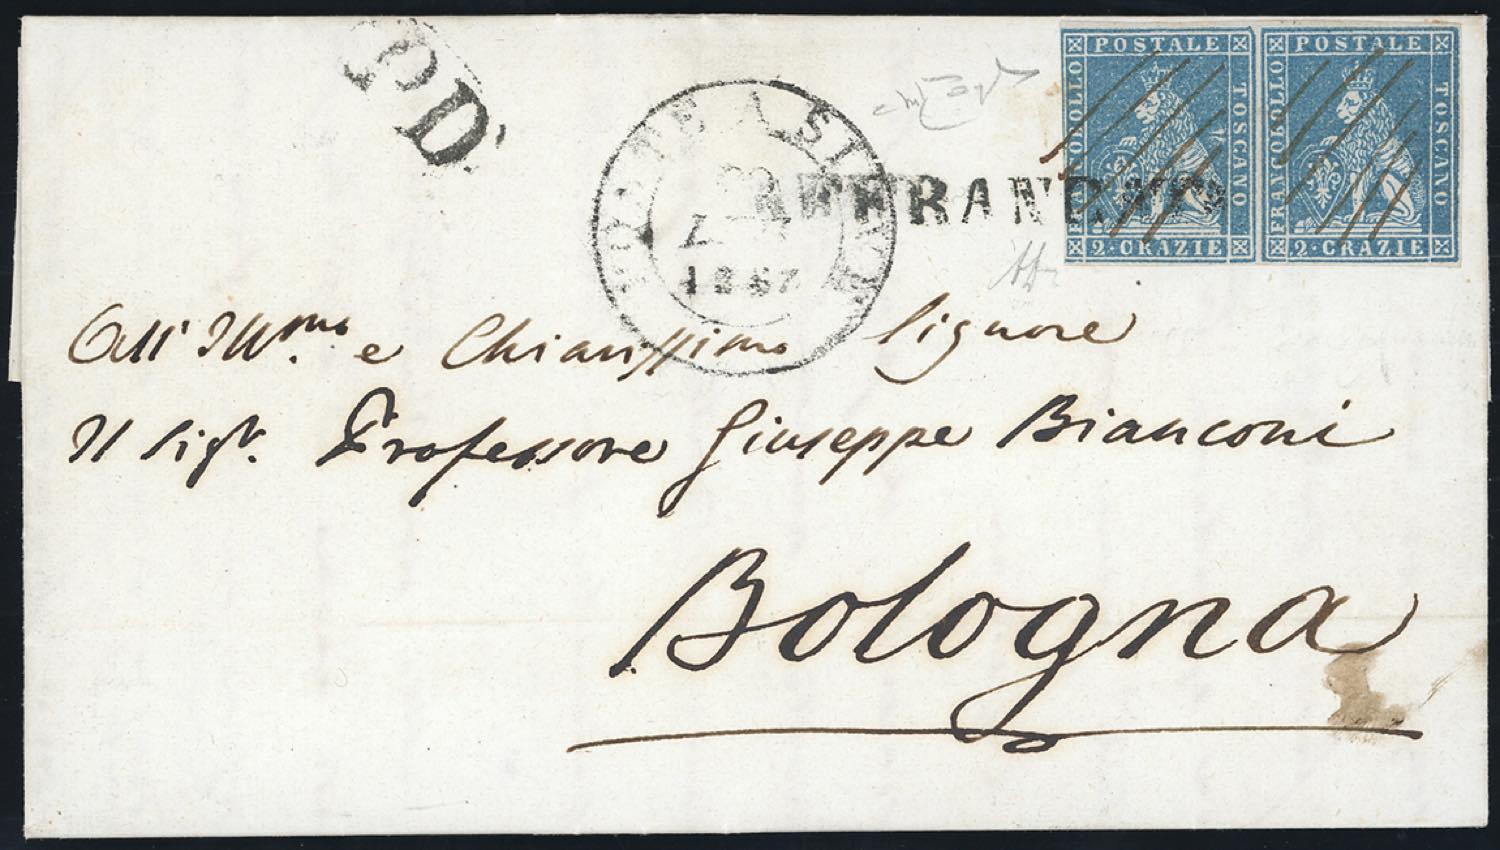 PD
POSTALE
FRANCOBOLLO
TOSCANO
2·CRAZIE
POSTALE
FRANCOBOLLO
TOSCANO
2·CRAZIE
1857
All' Illmo. e Chiarissimo Signore
Il Sigr. Professore Giuseppe Bianconi
Bologna